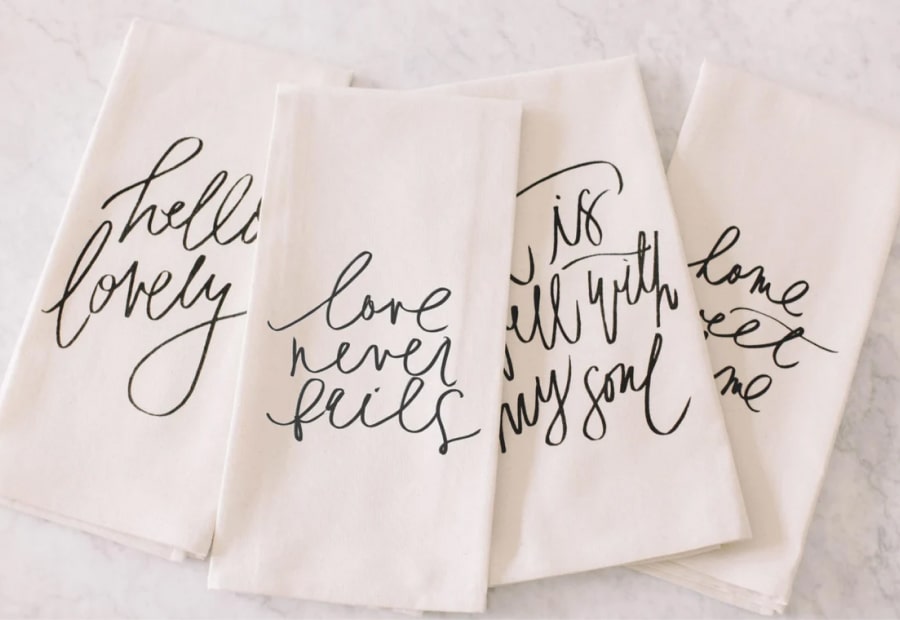 hello
lovely
love
never
fails
is
with
my soul
home
me